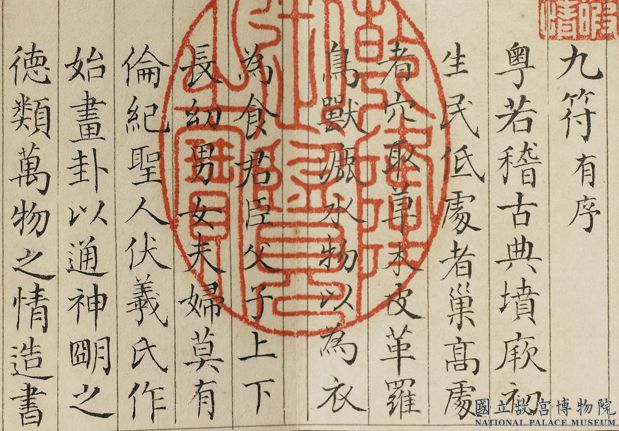 九符有序
粵若稽古典墳厥初
生民低處者巢高處
者穴取草木皮革羅
鳥獸漉水物以為衣
為食君臣父子上下
長幼男女夫婦莫有
倫紀聖人伏羲氏作
始畫卦以通神朙之
徳類萬物之情造書
國立故宮博物院
NATIONAL PALACE MUSEUM